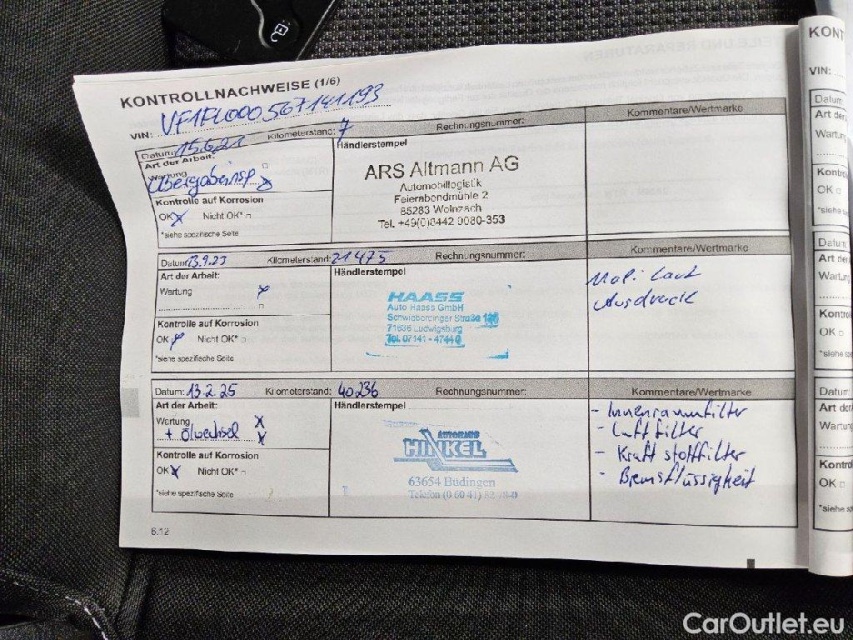 KONTROLLNACHWEISE (1/6)
VIN: VF1FL000567141193
Datum: 15.6.21 Kilometerstand: 7 Rechnungsnummer: Kommentare/Wertmarke
Art der Arbeit:
Wartung
Übergabeinsp. x
Kontrolle auf Korrosion
OK x Nicht OK*
*siehe spezifische Seite
Händlerstempel
ARS Altmann AG
Automobillogistik
Feierabendmühle 2
85283 Wolnzach
Tel. +49(0)8442 9080-353
Datum: 13.9.23 Kilometerstand: 21475 Rechnungsnummer: Kommentare/Wertmarke
Art der Arbeit:
Wartung x
Kontrolle auf Korrosion
OK x Nicht OK*
*siehe spezifische Seite
Händlerstempel
HAASS
Auto Haass GmbH
Schwieberdinger Straße
71636 Ludwigsburg
Tel. 07141 -
Mobi laut
Ausdruck
Datum: 13.2.25 Kilometerstand: 40236 Rechnungsnummer: Kommentare/Wertmarke
Art der Arbeit:
Wartung x
+ Ölwechsel x
Kontrolle auf Korrosion
OK x Nicht OK*
*siehe spezifische Seite
Händlerstempel
AUTOHAUS
HINKEL
63654 Büdingen
Telefon (0 60 41)
- Innenraumfilter
- Luftfilter
- Kraftstoffilter
- Bremsflüssigkeit
6.12
KONT
VIN:
Datum
Art der
Wartu
Kontro
OK
*siehe
Datum
Art der
Wartu
Kontro
OK
*siehe
Datum
Art der
Wartu
Kontro
OK
*siehe
CarOutlet.eu